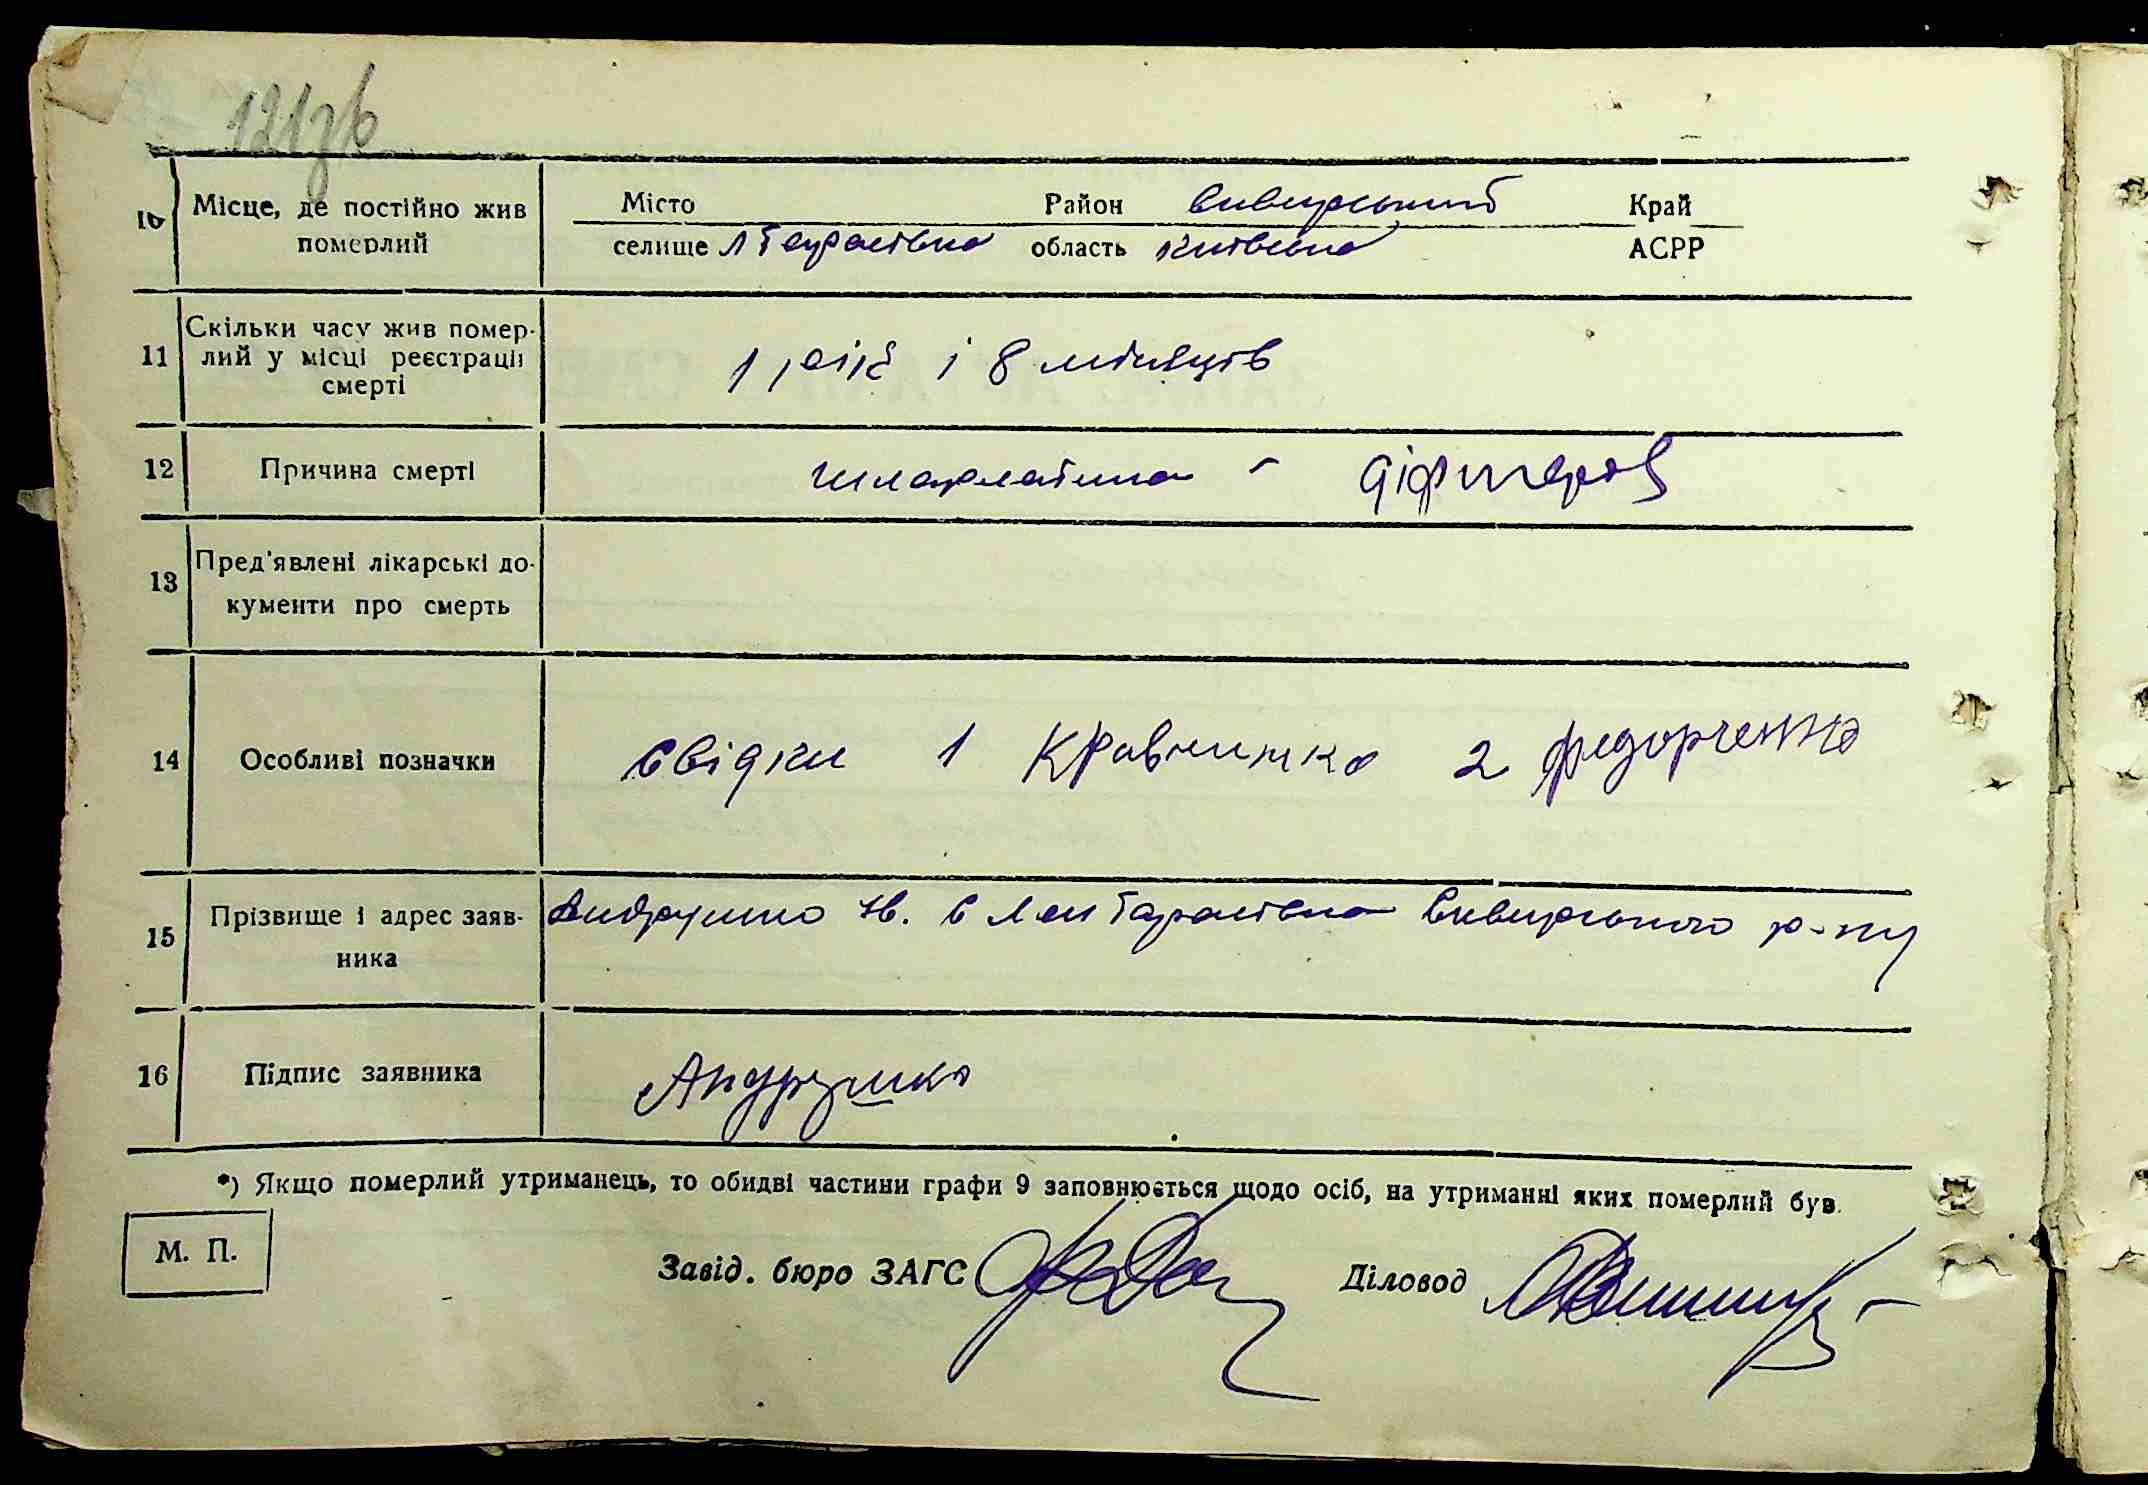 121зв
10 Місце, де постійно жив померлий
Місто Район Сквирський Край
селище область Київська АСРР
11 Скільки часу жив помер-
лий у місці реєстрації
смерті
1 рік і 8 місяців
12 Причина смерті
шкарлатина - діфтерія
13 Пред'явлені лікарські до-
кументи про смерть
14 Особливі позначки
свідки 1 Кравчишко 2 Федорченко
15 Прізвище і адрес заяв-
ника
Андрушко Ів. с Сквирського р-ну
16 Підпис заявника
Андрушко
*) Якщо померлий утриманець, то обидві частини графи 9 заповнюється щодо осіб, на утриманні яких померлий був.
М. П.
Завід. бюро ЗАГС Діловод